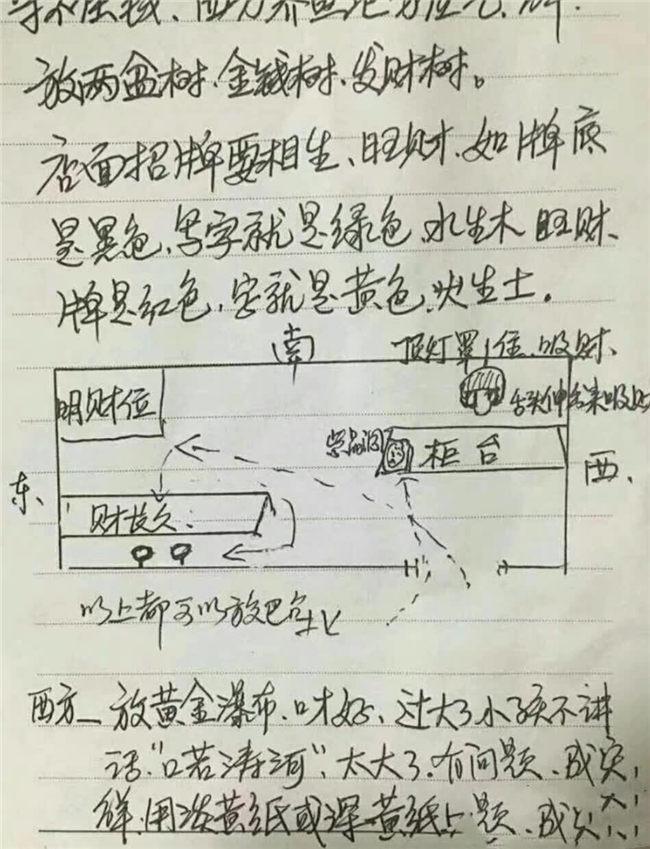 放两盆树、金钱树、发财树。
店面招牌要相生、旺财、如牌底
是黑色,写字就是绿色,水生木旺财、
牌是红色,字就是黄色,火生土。
南
顶灯罩1位、吸财、
明财位
舌头伸出来吸财
柜台
东、
西、
财技久、
以上都可以放吧台
北
西方—放黄金瀑布、口才好、过大了小孩不讲
话、“口若涛河”、太大了、有问题、
用淡黄纸或深黄纸 题、